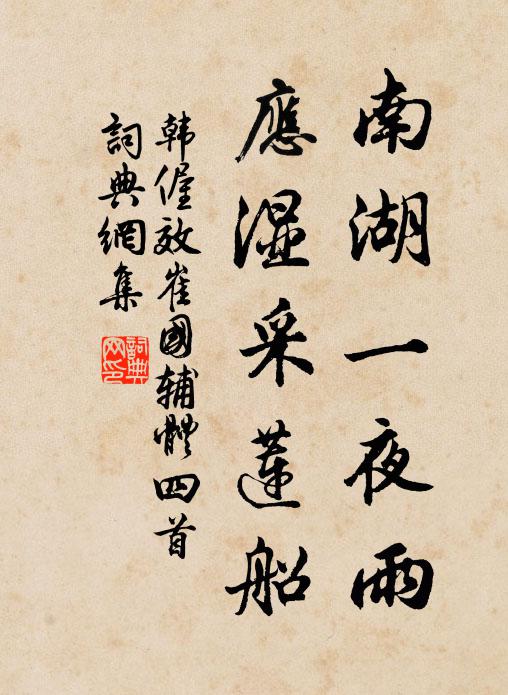 南湖一夜雨
應湿采蓮船
韩偓效崔國辅體四首
詞典網集
詞典
网印